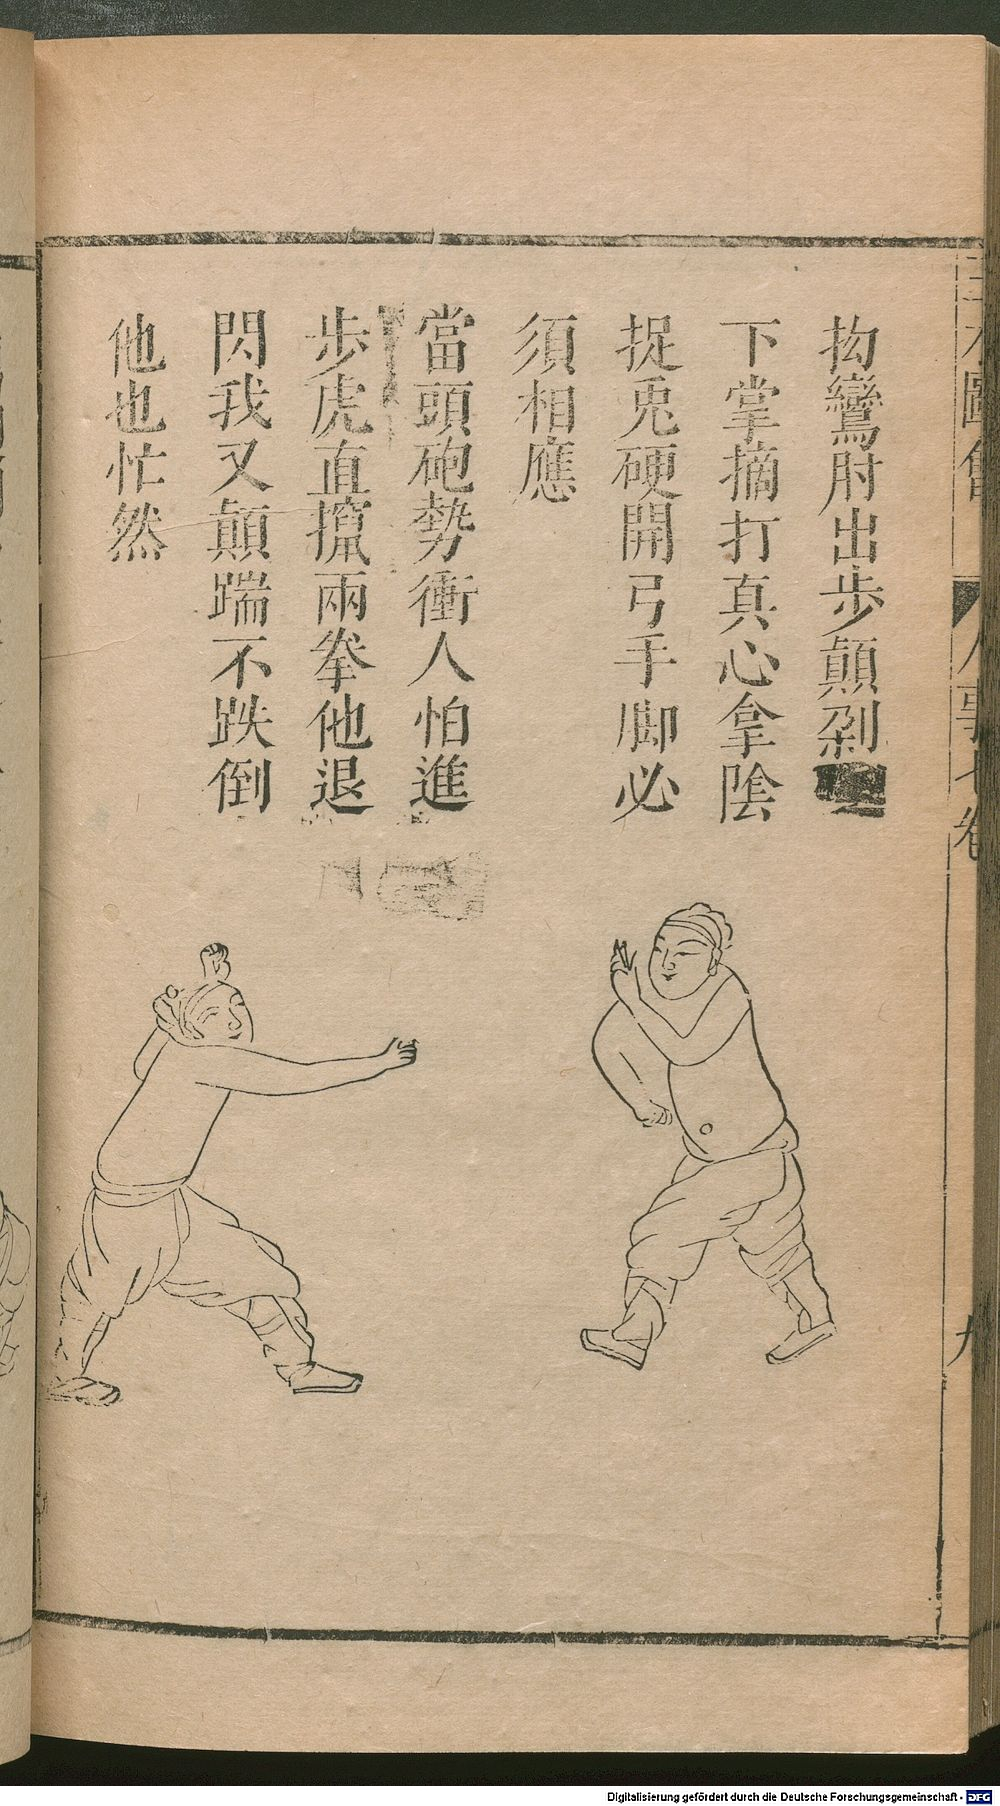 拗鸞肘出步顛剁
下掌摘打真心拿陰
捉兎硬開弓手脚必
須相應
當頭砲勢衝人怕進
步虎直攛兩拳他退
閃我又顛踹不跌倒
他也忙然
Digitalisierung gefördert durch die Deutsche Forschungsgemeinschaft - DFG